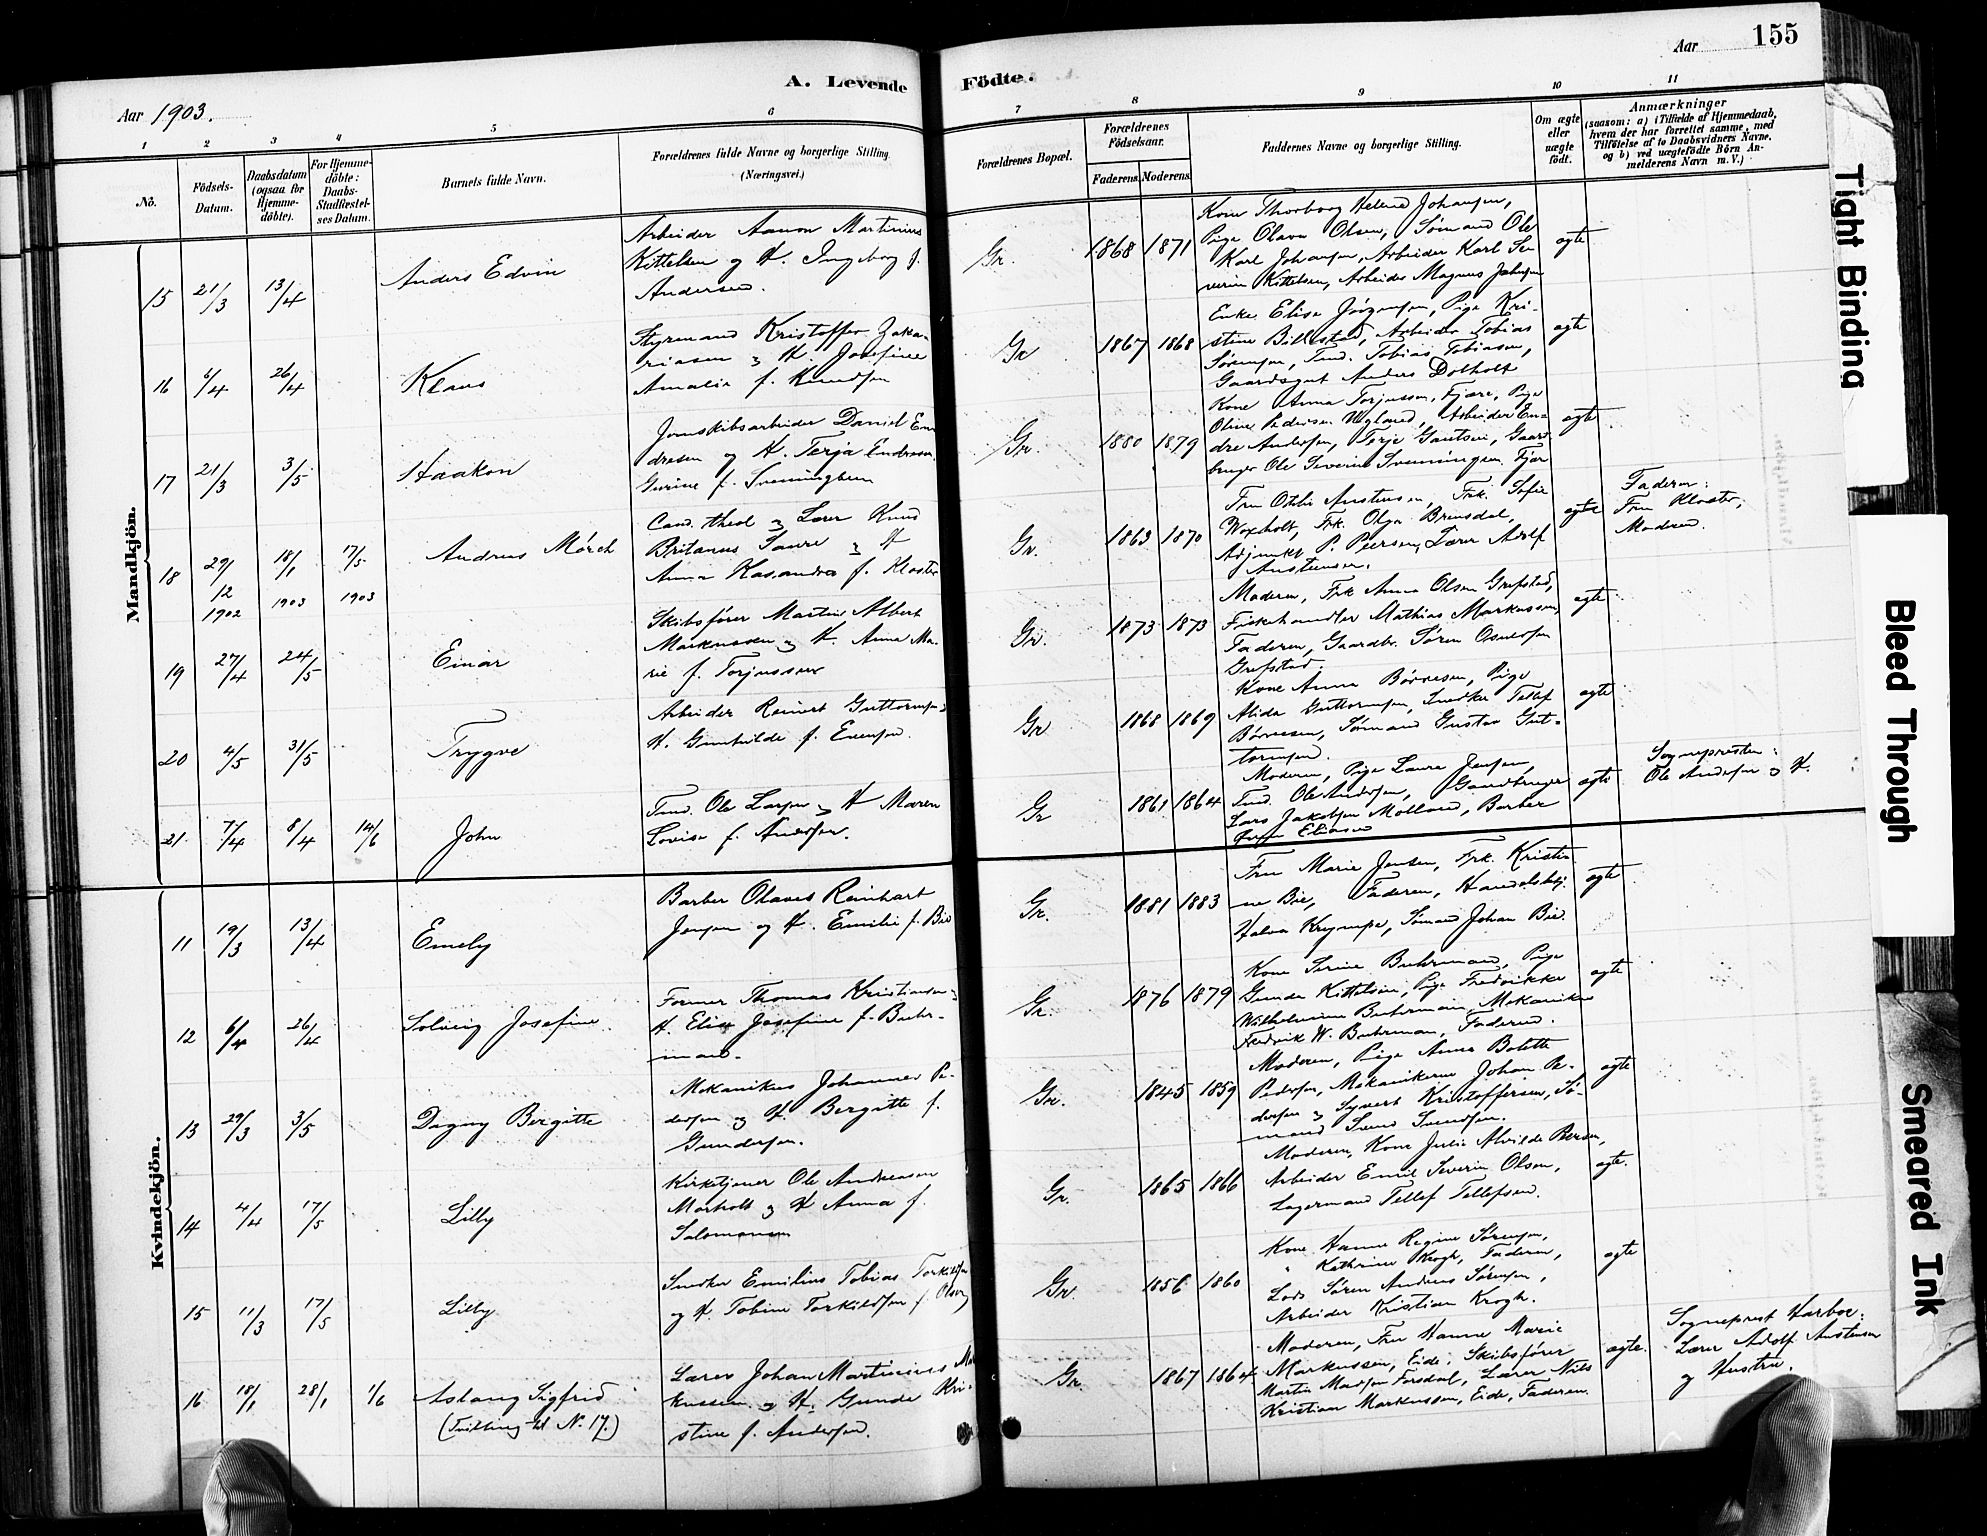 Aar 155
A. Levende Födte.
Aar 1903.
1 2 3 4 5 6 7 8 9 10 11
No.
Födsels-
Datum.
Daabsdatum
(ogsaa for
Hjemme-
döbte).
For Hjemme-
döbte:
Daabs-
Stadfæstel-
ses Datum.
Barnets fulde Navn.
Forældrenes fulde Navne og borgerlige Stilling.
(Næringsvei.)
Forældrenes Bopæl.
Forældrenes
Födselsaar.
Faderens. Moderens.
Faddernes Navne og borgerlige Stilling.
Om ægte
eller
uægte
födt.
Anmærkninger
(saasom: a) i Tilfælde af Hjemmedaab,
hvem der har forrettet samme, med
Tilföielse af to Daabsvidners Navne,
og b) ved uægtefödte Börn An-
melderens Navn m. V.)
Mandkjön.
15 21/3 13/4 Anders Edvin
Arbeider Aanon Martinius
Kittelsen og H. Ingeborg f.
Andersen.
Gr. 1868 1871
Kone Thorborg Helene Johansen,
Pige Olava Olsen, Sömand Ole
Karl Johansen, Arbeider Karl Se-
verin Kittelsen, Arbeider Magnus Johnsen
ægte
16 6/4 26/4 Klaus
Styrmand Kristoffer Zaka-
riasen og H. Josefine
Amalie f. Knudsen
Gr 1867 1868
Enke Elise Jörgensen, Pige Kri-
stine Billestad, Arbeider Tobias
Sörensen, Tmd. Tobias Tobiasen,
Gaardsgut Anders Dolholt
ægte
17 21/3 3/5 Haakon
Jernskibsarbeider Daniel En-
dresen og H. Terja Endresen
Gurine f. Svenningsen
Gr. 1880 1879
Kone Anna Torjussen, Fjære, Pige
Oline Pedersen Vegland, Arbeider En-
dre Andersen, Terje Gautsen, Gaard-
bruger Ole Severin Svenningsen Fjær
ægte
18 29/12 1902 18/1 1903 17/5 1903 Andreas Mörch
Cand. theol og Lærer Knud
Britanus Saure og H
Anna Kasandra f. Kloster
Gr. 1863 1870
Fru Othlie Austensen, Frk. Sofie
Woxholt, Frk. Olga Brinsdal,
Adjunkt P. Peersen, Lærer Adolf
Austensen.
ægte
Faderen:
Fru Kloster,
Moderen.
19 27/4 24/5 Einar
Skibsförer Martin Albert
Markussen og H. Anna Ma-
rie f. Torjussen
Gr. 1873 1873
Moderen, Frk Anna Olsen Grefstad,
Fiskehandler Mathias Markussen,
Faderen, Gaardbr. Sören Osuldsen
Grefstad.
ægte
20 4/5 31/5 Trygve
Arbeider Reinert Guttormsen og
H. Gunhilde f. Evensen.
Gr 1868 1869
Kone Anna Börresen, Pige
Alida Guttormsen, Snedker Tellef
Börresen, Sömand Gustav Gut-
tormsen.
ægte
21. 7/4 8/4 14/6 John
Tmd. Ole Larsen og H Maren
Lovise f. Andersen.
Gr 1861 1864
Moderen, Pige Laura Jensen,
Tmd. Ole Andersen, Gaardbruger
Lars Jakobsen Molland, Barber
Eliasen
ægte
Sognepresten:
Ole Andersen og H.
Kvindekjön.
11 19/3 13/4 Emely
Barber Olaves Reinhart
Jensen og H. Emilie f. Bie
Gr. 1881 1883
Fru Marie Jensen, Frk. Kristi-
ne Bie, Faderen, Handelsbetj.
Halvor Krympe, Sömand Johan Bie.
ægte
12 6/4 26/4 Solveig Josefine
Former Thomas Kristiansen og
H. Elise Josefine f. Buhr-
mand.
Gr. 1876 1879
Kone Serine Buhrmand, Pige
Gunda Kittelsen, Pige Fredrikke
Wilhelmine Buhrman, Mekaniker
Fredrik W. Buhrman, Faderen.
ægte
13 29/3 3/5 Dagny Bergitte
Mekanikus Johannes Pe-
dersen og H. Bergitte f.
Gundersen.
Gr. 1845 1859
Moderen, Pige Anna Bolette
Pedersen, Mekanikerne Johan Pe-
dersen og Syvert Kristoffersen, Sö-
mand Svend Svendsen.
ægte
14 4/4 17/5 Lilly
Kirketjener Ole Andreasen
Morholt og H Anna f.
Salomonsen
Gr. 1865 1866
Moderen, Kone Julie Alvilde Bersen,
Arbeider Emil Severin Olsen,
Lagermand Tellef Tellefsen.
ægte.
15 11/3 17/5 Lilly
Snedker Emilius Tobias Torkildsen
og H Tobine Torkildsen f. Olsen
Gr. 1856 1860
Kone Hanne Regine Sörensen,
" Kathrine Krogh, Faderen,
Lods Sören Andreas Sörensen,
Arbeider Kristian Krogh.
ægte
16 18/1 28/1 1/6 Aslaug Sigfrid
(Tvilling til N. 17.)
Lærer Johan Martinius Mar-
kussen og H. Gunde Kri-
stine f. Andersen.
Gr. 1867 1864
Moderen, Fru Hanne Marie
Markussen, Eide, Skibsförer
Martin Madsen Fosdal, Lærer Nils
Kristian Markussen, Eide, Faderen.
ægte.
Sogneprest Harboe:
Lærer Adolf Austensen
og Hustru.
Tight Binding
Bleed Through
Smeared Ink